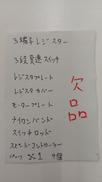 3端子レジスター
3段変速スイッチ
レジスタプレート
レジスタカバー
モータープレート
ナイロンバンド
スイッチロッド
スピードコントローラー
欠品